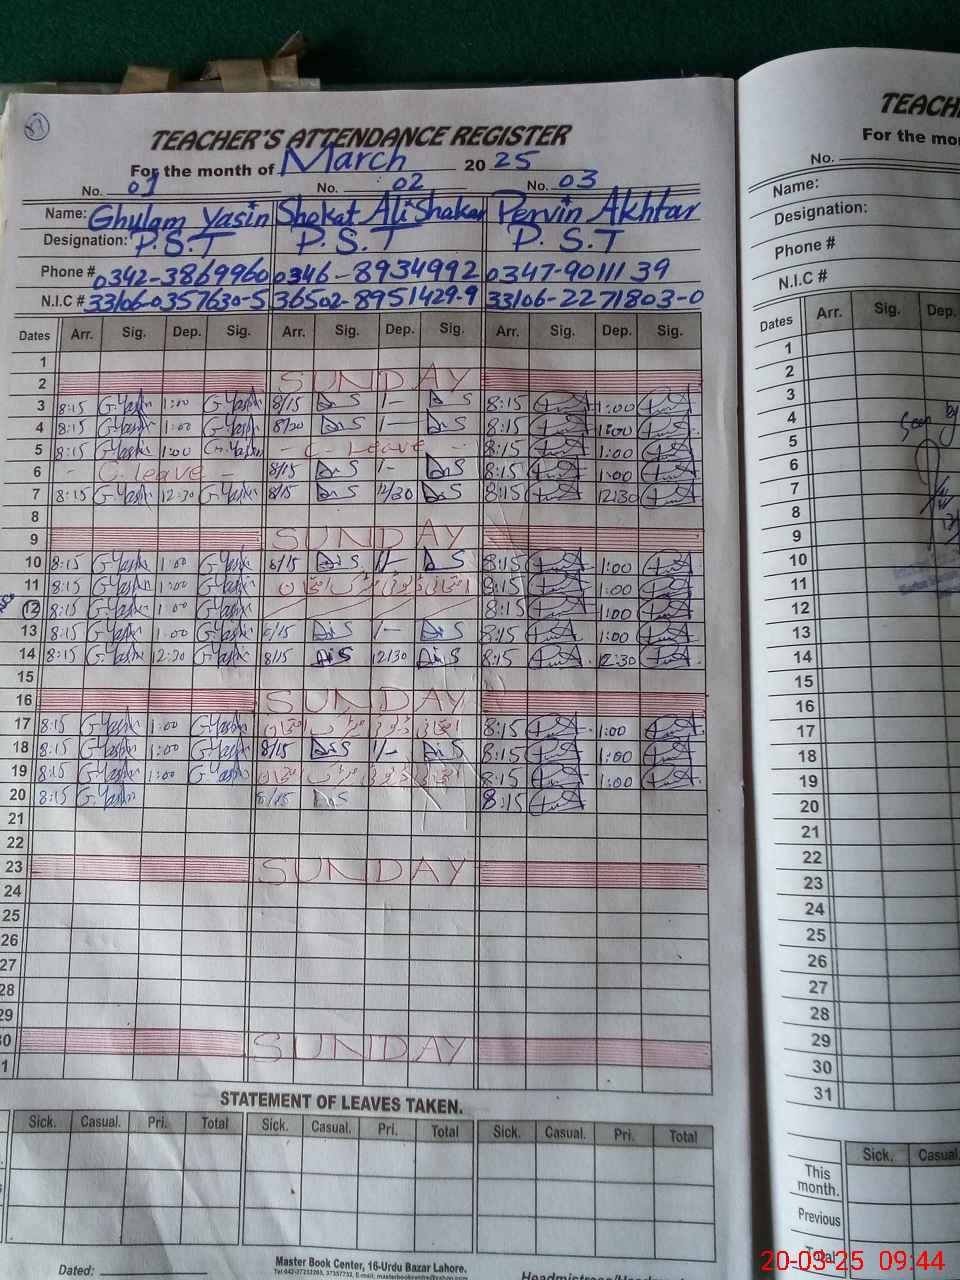 TEACHER'S ATTENDANCE REGISTER
For the month of March 2025
No. 01 No. 02 No. 03
Name: Ghulam Yasin Shokat Ali Shakar Pervin Akhtar
Designation: P.S.T P.S.T P.S.T
Phone # 0342-3869960 0346-8934992 0347-9011139
N.I.C # 33106-0357630-5 36502-8951429-9 33106-2271803-0
Dates Arr. Sig. Dep. Sig. Arr. Sig. Dep. Sig. Arr. Sig. Dep. Sig.
1
2 SUNDAY
3 8:15 G.Yasin 1:00 G.Yasin 8/15 1- 8:15 1:00
4 8:15 G.Yasin 1:00 G.Yasin 8/20 1- 8:15 1:00
5 8:15 G.Yasin 1:00 G.Yasin - C. Leave - 8:15 1:00
6 - C. leave - 8/15 1- 8:15 1:00
7 8:15 G.Yasin 12:30 G.Yasin 8/15 12/30 8:15 12:30
8
9 SUNDAY
10 8:15 G.Yasin 1:00 G.Yasin 8/15 1/- 8:15 1:00
11 8:15 G.Yasin 1:00 G.Yasin 8:15 1:00
12 8:15 G.Yasin 1:00 G.Yasin 8:15 1:00
13 8:15 G.Yasin 1:00 G.Yasin 8/15 1/- 8:15 1:00
14 8:15 G.Yasin 12:30 G.Yasin 8/15 12/30 8:15 12:30
15
16 SUNDAY
17 8:15 G.Yasin 1:00 G.Yasin 8:15 1:00
18 8:15 G.Yasin 1:00 G.Yasin 8/15 1/- 8:15 1:00
19 8:15 G.Yasin 1:00 G.Yasin 8:15 1:00
20 8:15 G.Yasin 8/15 8:15
21
22
23 SUNDAY
24
25
26
27
28
29
30 SUNDAY
STATEMENT OF LEAVES TAKEN.
Sick. Casual. Pri. Total Sick. Casual. Pri. Total Sick. Casual. Pri. Total
Dated:
Master Book Center, 16-Urdu Bazar Lahore.
For the
No.
Name:
Designation:
Phone #
N.I.C #
Dates Arr. Sig. Dep.
1
2
3
4
5
6
7
8
9
10
11
12
13
14
15
16
17
18
19
20
21
22
23
24
25
26
27
28
29
30
31
Sick. Casual
This month.
Previous
Total
20-03-25 09:44